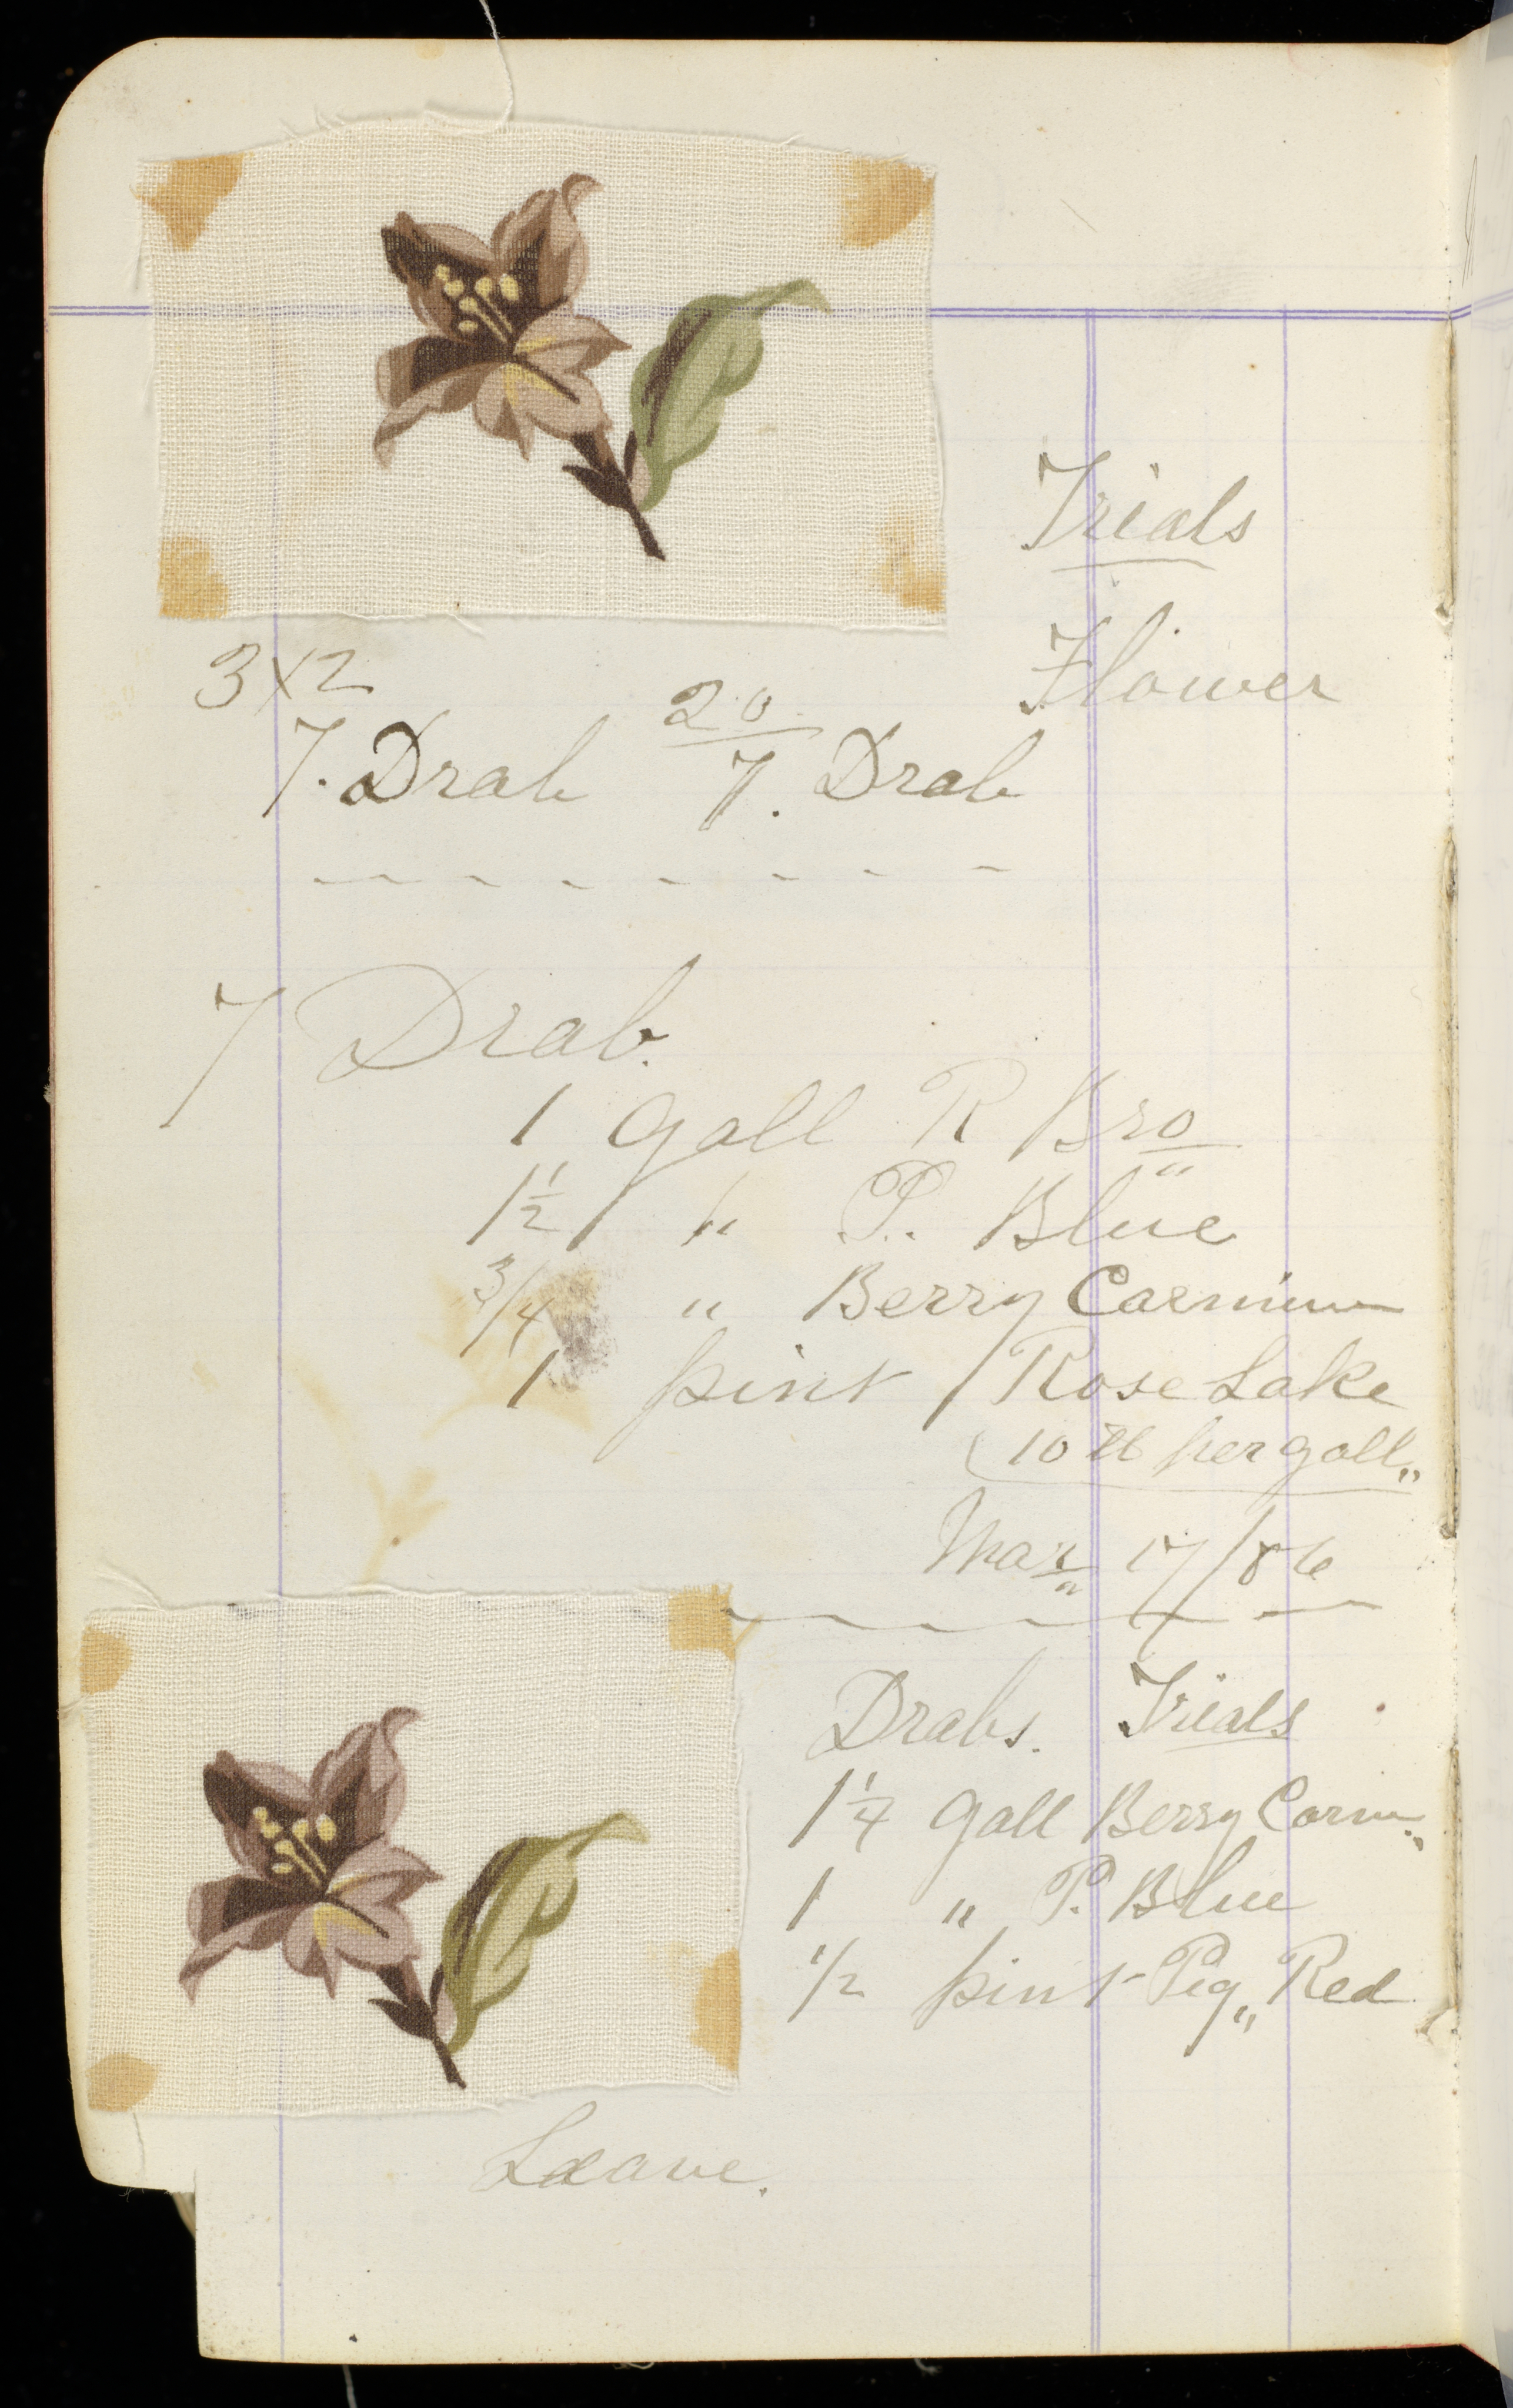 Trials
Flower
3x2
7. Drab 20/7. Drab
7 Drab.
1 gall R Bro"
1 1/2 " P. Blue
3/4 " Berry Carmine
1 pint / Rose Lake
(10 lb per gall"
Mar" 17/86
Drabs. Trials
1 1/4 gall Berry Carm"
1 " P. Blue
1/2 pint Pig" Red
Leave.